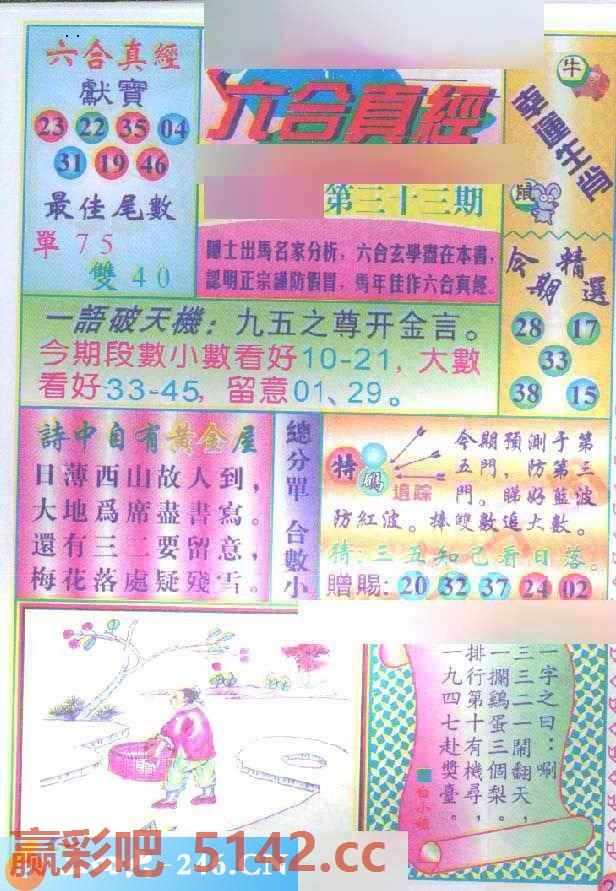 六合真經
獻寶
23 22 35 04
31 19 46
最佳尾數
單75
雙40
六合真經
第三十三期
隱士出馬名家分析，六合玄學盡在本書，
認明正宗謹防假冒，馬年佳作六合真經。
牛
幸運生肖
鼠
今期精選
28 17
33
38 15
一語破天機：九五之尊开金言。
今期段數小數看好10-21，大數
看好33-45，留意01、29。
詩中自有黃金屋
日薄西山故人到，
大地爲席盡書寫。
還有三二要留意，
梅花落處疑殘雪。
總分單 合數小
特碼
追踪
今期預測于第
五門，防第三
門。睇好藍波
防紅波。捧雙數追大數。
猜：三五知己看日落。
贈賜：20 32 37 24 02
一字之曰：唰
三三二一鬧翻天，
一擱鷄蛋三個梨。
排行第十有機尋，
一九四七赴獎臺。
白小姐
赢彩吧 5142.cc
246.CN